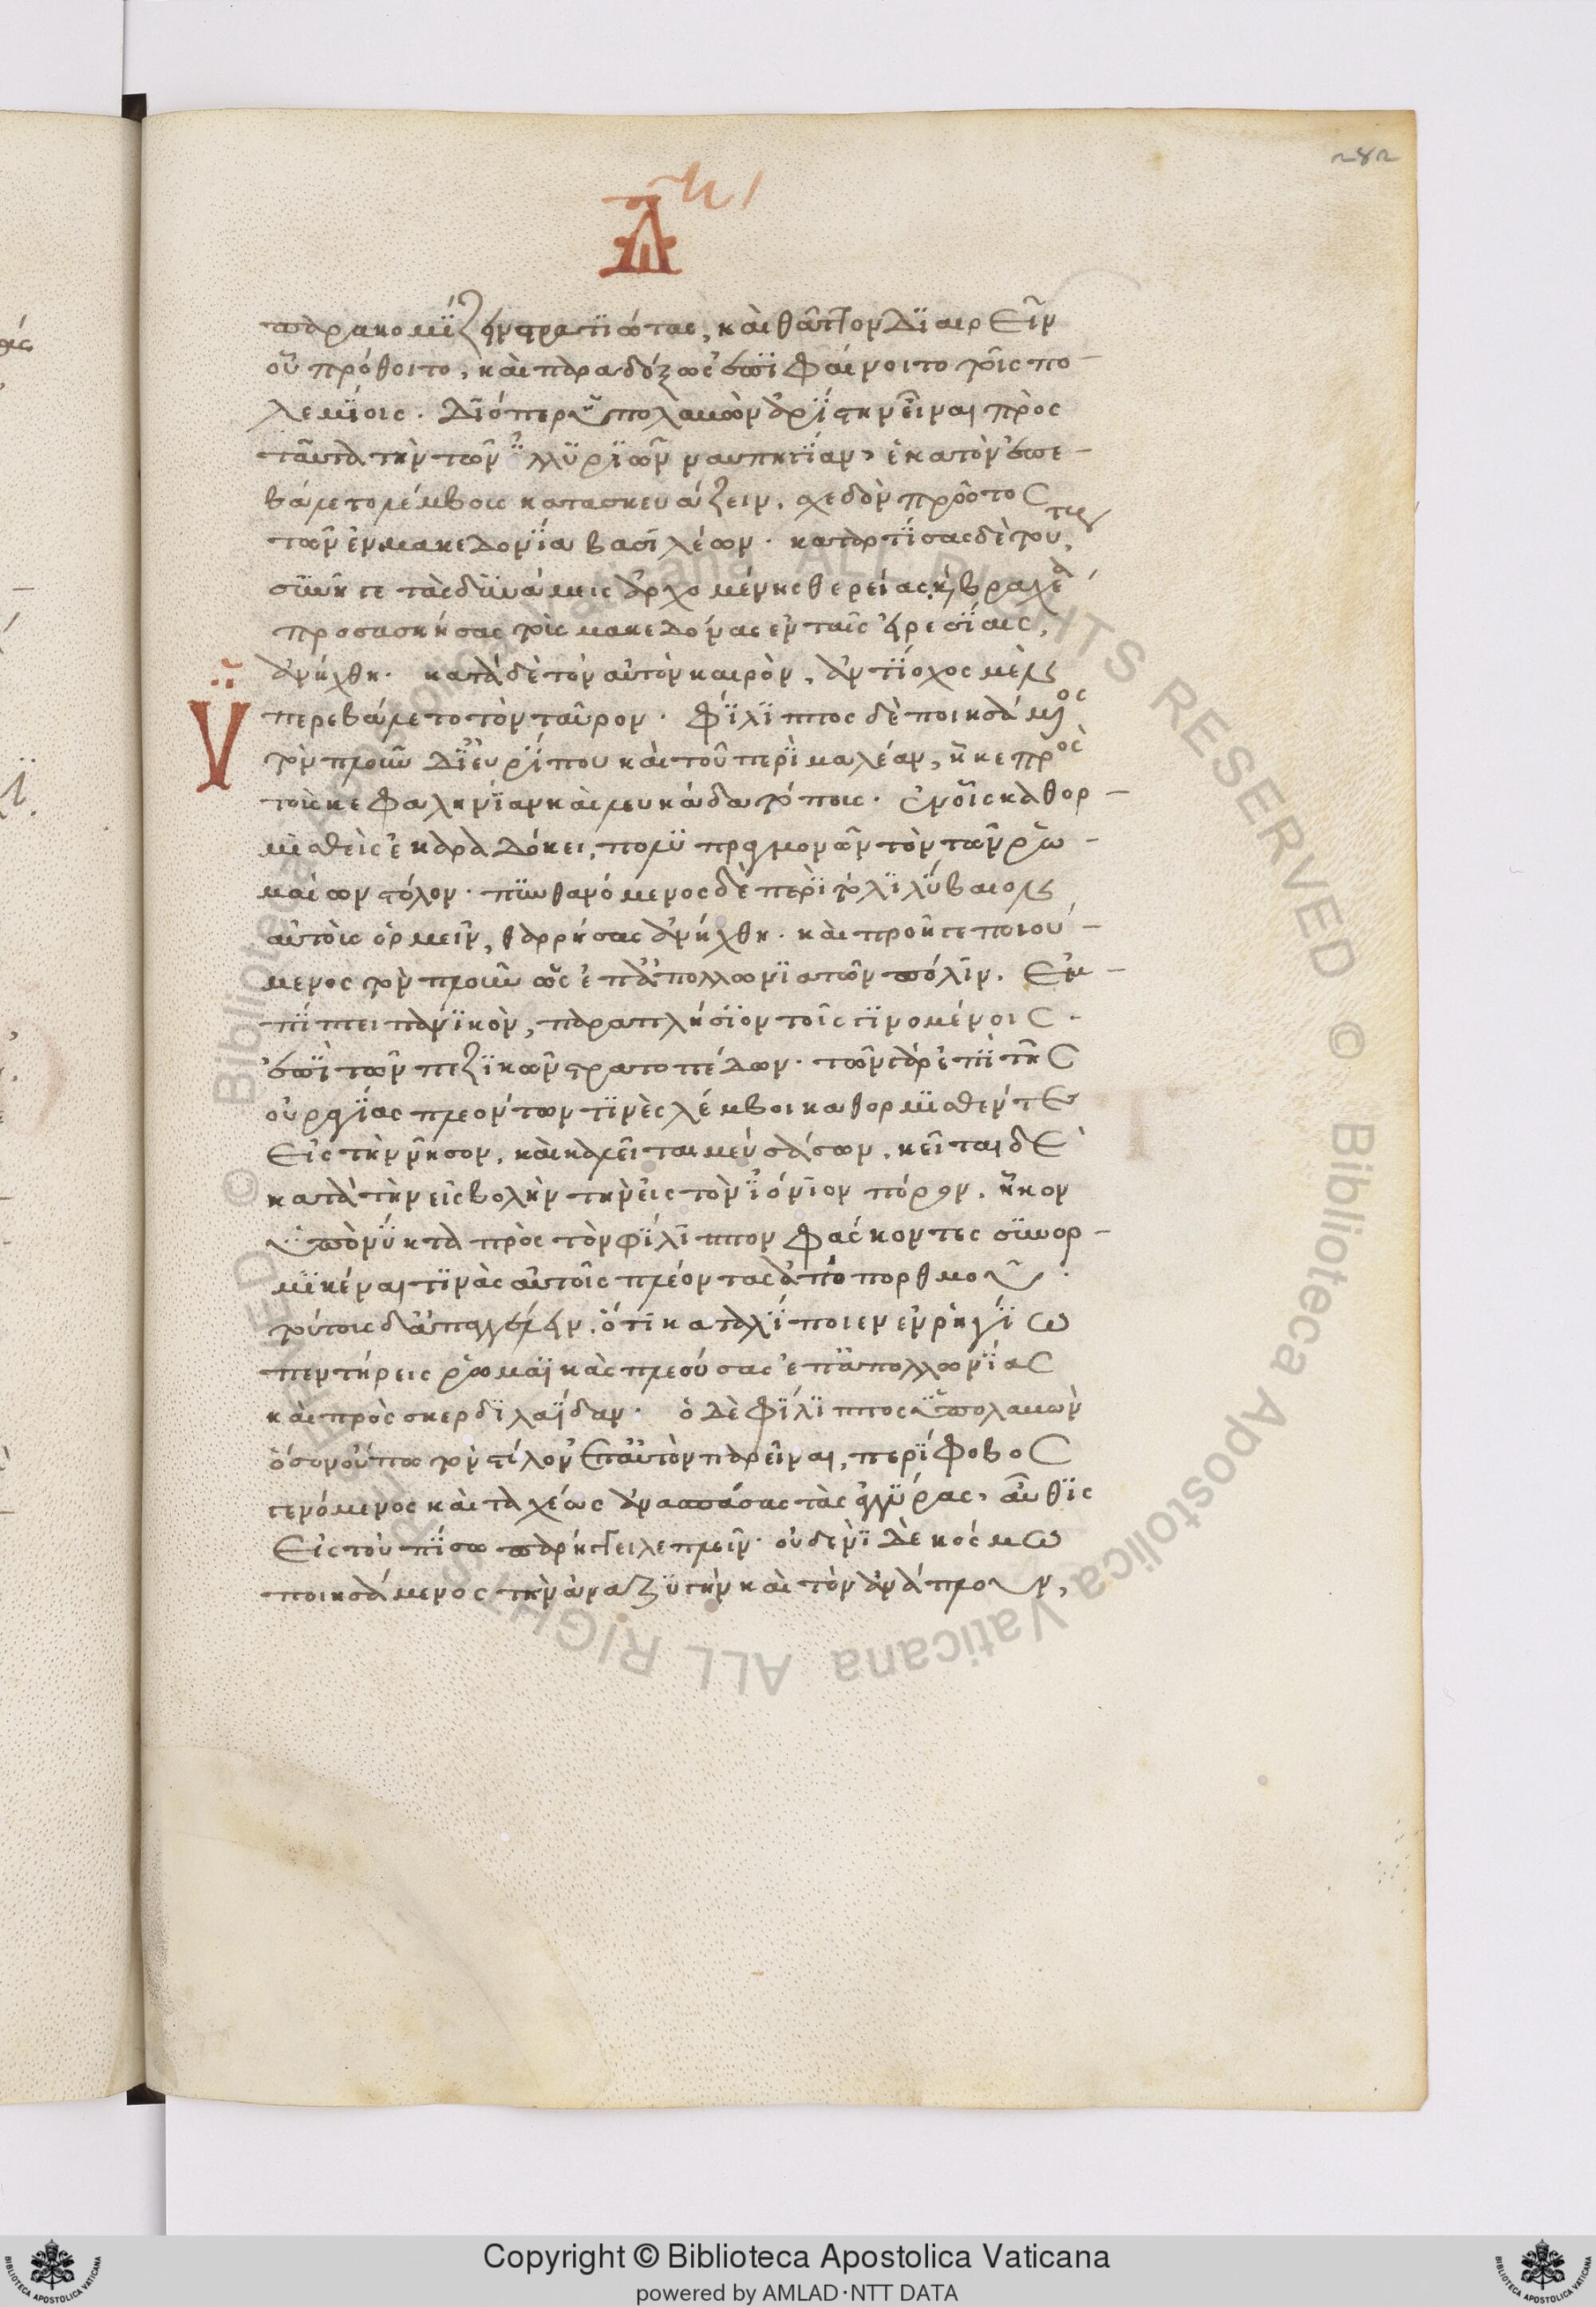 282
παρακομίζειν στρατιώτας, καὶ θᾶττον διαιρεῖν
οὗ πρόθοιτο, καὶ παραδόξως ἐπιφαίνοιτο τοῖς πο-
λεμίοις. διόπερ ὑπολαβὼν ἀρίστην εἶναι πρὸς
ταῦτα τὴν τῶν ἰλλυριῶν ναυπηγίαν, ἑκατὸν ἐπε-
βάλετο λέμβους κατασκευάζειν, σχεδὸν πρῶτος
τῶν ἐν μακεδονίᾳ βασιλέων. καταρτίσας δὲ τούτους,
συνῆγε τὰς δυνάμεις ἀρχομένης θερείας, καὶ βραχέα
προσασκήσας τοὺς μακεδόνας ἐν ταῖς εἰρεσίαις,
ἀνήχθη. κατὰ δὲ τὸν αὐτὸν καιρὸν, ἀντίοχος μὲν
ὑπερεβάλετο τὸν ταῦρον. φίλιππος δὲ ποιησάμενος
τὸν πλοῦν δι' εὐρίπου καὶ τοῦ περὶ μαλέαν, ἧκε πρὸς
τοὺς κεφαληνίαν καὶ λευκάδα τόπους. ἐν οἷς καθορ-
μισθεὶς ἐκαραδόκει, πολυπραγμονῶν τὸν τῶν ῥω-
μαίων στόλον. πυνθανόμενος δὲ περὶ τὸ λιλύβαιον
αὐτοὺς ὁρμεῖν, θαρρήσας ἀνήχθη. καὶ προῆγε ποιού-
μενος τὸν πλοῦν ὡς ἐπ' ἀπολλωνιατῶν πόλιν. ἐμ-
πίπτει πανικὸν, παραπλήσιον τοῖς γινομένοις
ἐπὶ τῶν πεζικῶν στρατοπέδων. τῶν γὰρ ἐπὶ τῆς
οὐραγίας πλεόντων τινὲς λέμβοι καθορμισθέντες
εἰς τὴν νῆσον, καὶ καλεῖται μὲν σάσων, κεῖται δὲ
κατὰ τὴν εἰσβολὴν τὴν εἰς τὸν ἰόνιον πόρον. ἧκον
ὑπὸ νύκτα πρὸς τὸν φίλιππον φάσκοντες συνορ-
μικέναι τινὰς αὐτοῖς πλέοντας ἀπὸ πορθμοῦ.
τούτους δ' ἀπαγγέλλειν, ὅτι καταλίποιεν ἐν ῥηγίῳ
πεντήρεις ῥωμαϊκὰς πλεούσας ἐπ' ἀπολλωνίας
καὶ πρὸς σκερδιλαΐδαν. ὁ δὲ φίλιππος ὑπολαβὼν
ὅσον οὔπω τὸν στόλον ἐπ' αὐτὸν παρεῖναι, περίφοβος
γενόμενος καὶ ταχέως ἀνασπάσας τὰς ἀγκύρας, αὖθις
εἰς τοὐπίσω παρήγγειλε πλεῖν. οὐδενὶ δὲ κόσμῳ
ποιησάμενος τὴν ἀναζυγὴν καὶ τὸν ἀνάπλουν,